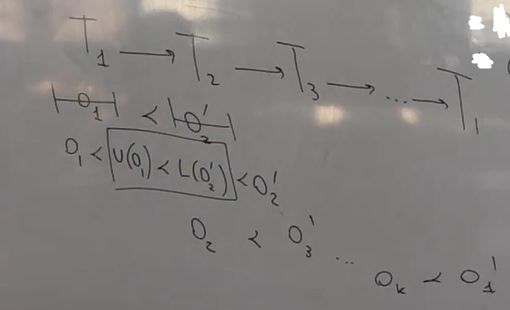 T₁ → T₂ → T₃ → ... → T₁
|-O₁-| < |-O₂'-|
O₁ < U(O₁) < L(O₂') < O₂'
O₂ < O₃'
...
Oₖ < O₁'